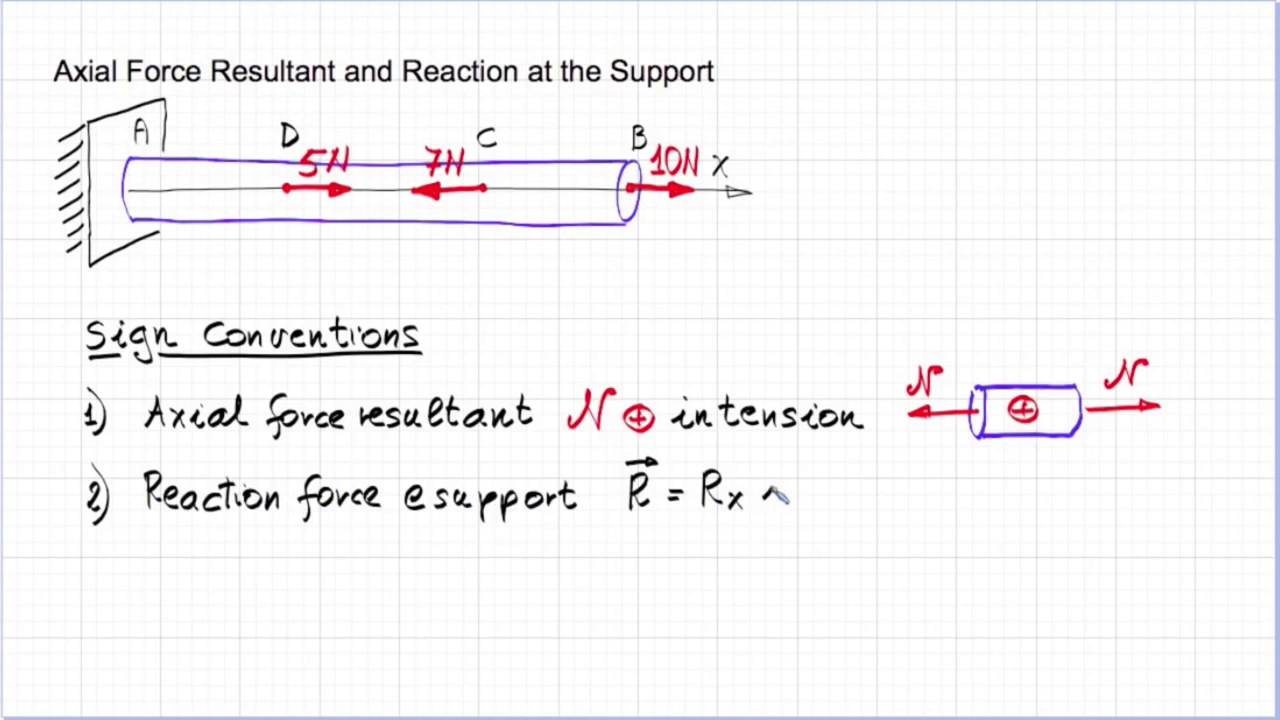 Axial Force Resultant and Reaction at the Support
A D C B
5N 7N 10N X
Sign Conventions
N N
1) Axial force resultant N ⊕ in tension ⊕
2) Reaction force @ support R⃗ = Rx